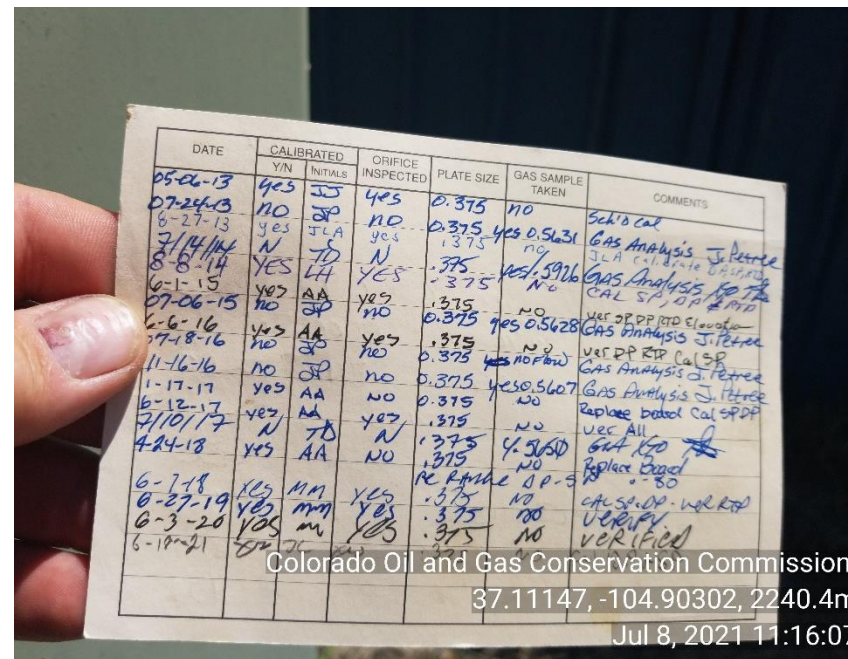 DATE CALIBRATED ORIFICE INSPECTED PLATE SIZE GAS SAMPLE TAKEN COMMENTS
Y/N INITIALS
05-06-13 yes JJ yes 0.375 no Sch'd cal
07-24-13 no JP no 0.375 yes 0.5631 GAS Analysis J. Petree
8-27-13 yes JLA yes .375 no JLA Calibrate
7/14/14 N TD N .375 yes/.5926 GAS Analysis
8-8-14 YES LH YES .375 No CAL SP, DP & RTD
6-1-15 yes AA yes .375 NO ver SP DP RTD
07-06-15 no JP no 0.375 yes 0.5628 GAS Analysis J. Petree
6-6-16 yes AA yes .375 NO ver DP RTD Cal SP
07-18-16 no JP no 0.375 no Flow GAS Analysis J. Petree
11-16-16 no JP no 0.375 yes 0.5607 GAS Analysis J. Petree
1-17-17 yes AA NO 0.375 NO Replace board Cal SP DP
6-12-17 yes AA yes .375 NO ver All
7/10/17 N TD N .375 Y.5650
4-24-18 yes AA NO .375 NO Replace Board
6-7-18 yes MM yes .375 NO CAL SP. DP. VER RTD
6-27-19 yes mm yes .375 no VERIFY
6-3-20 YOS m YOS .375 NO VERIFIED
Colorado Oil and Gas Conservation Commission
37.11147, -104.90302, 2240.4m
Jul 8, 2021 11:16:07